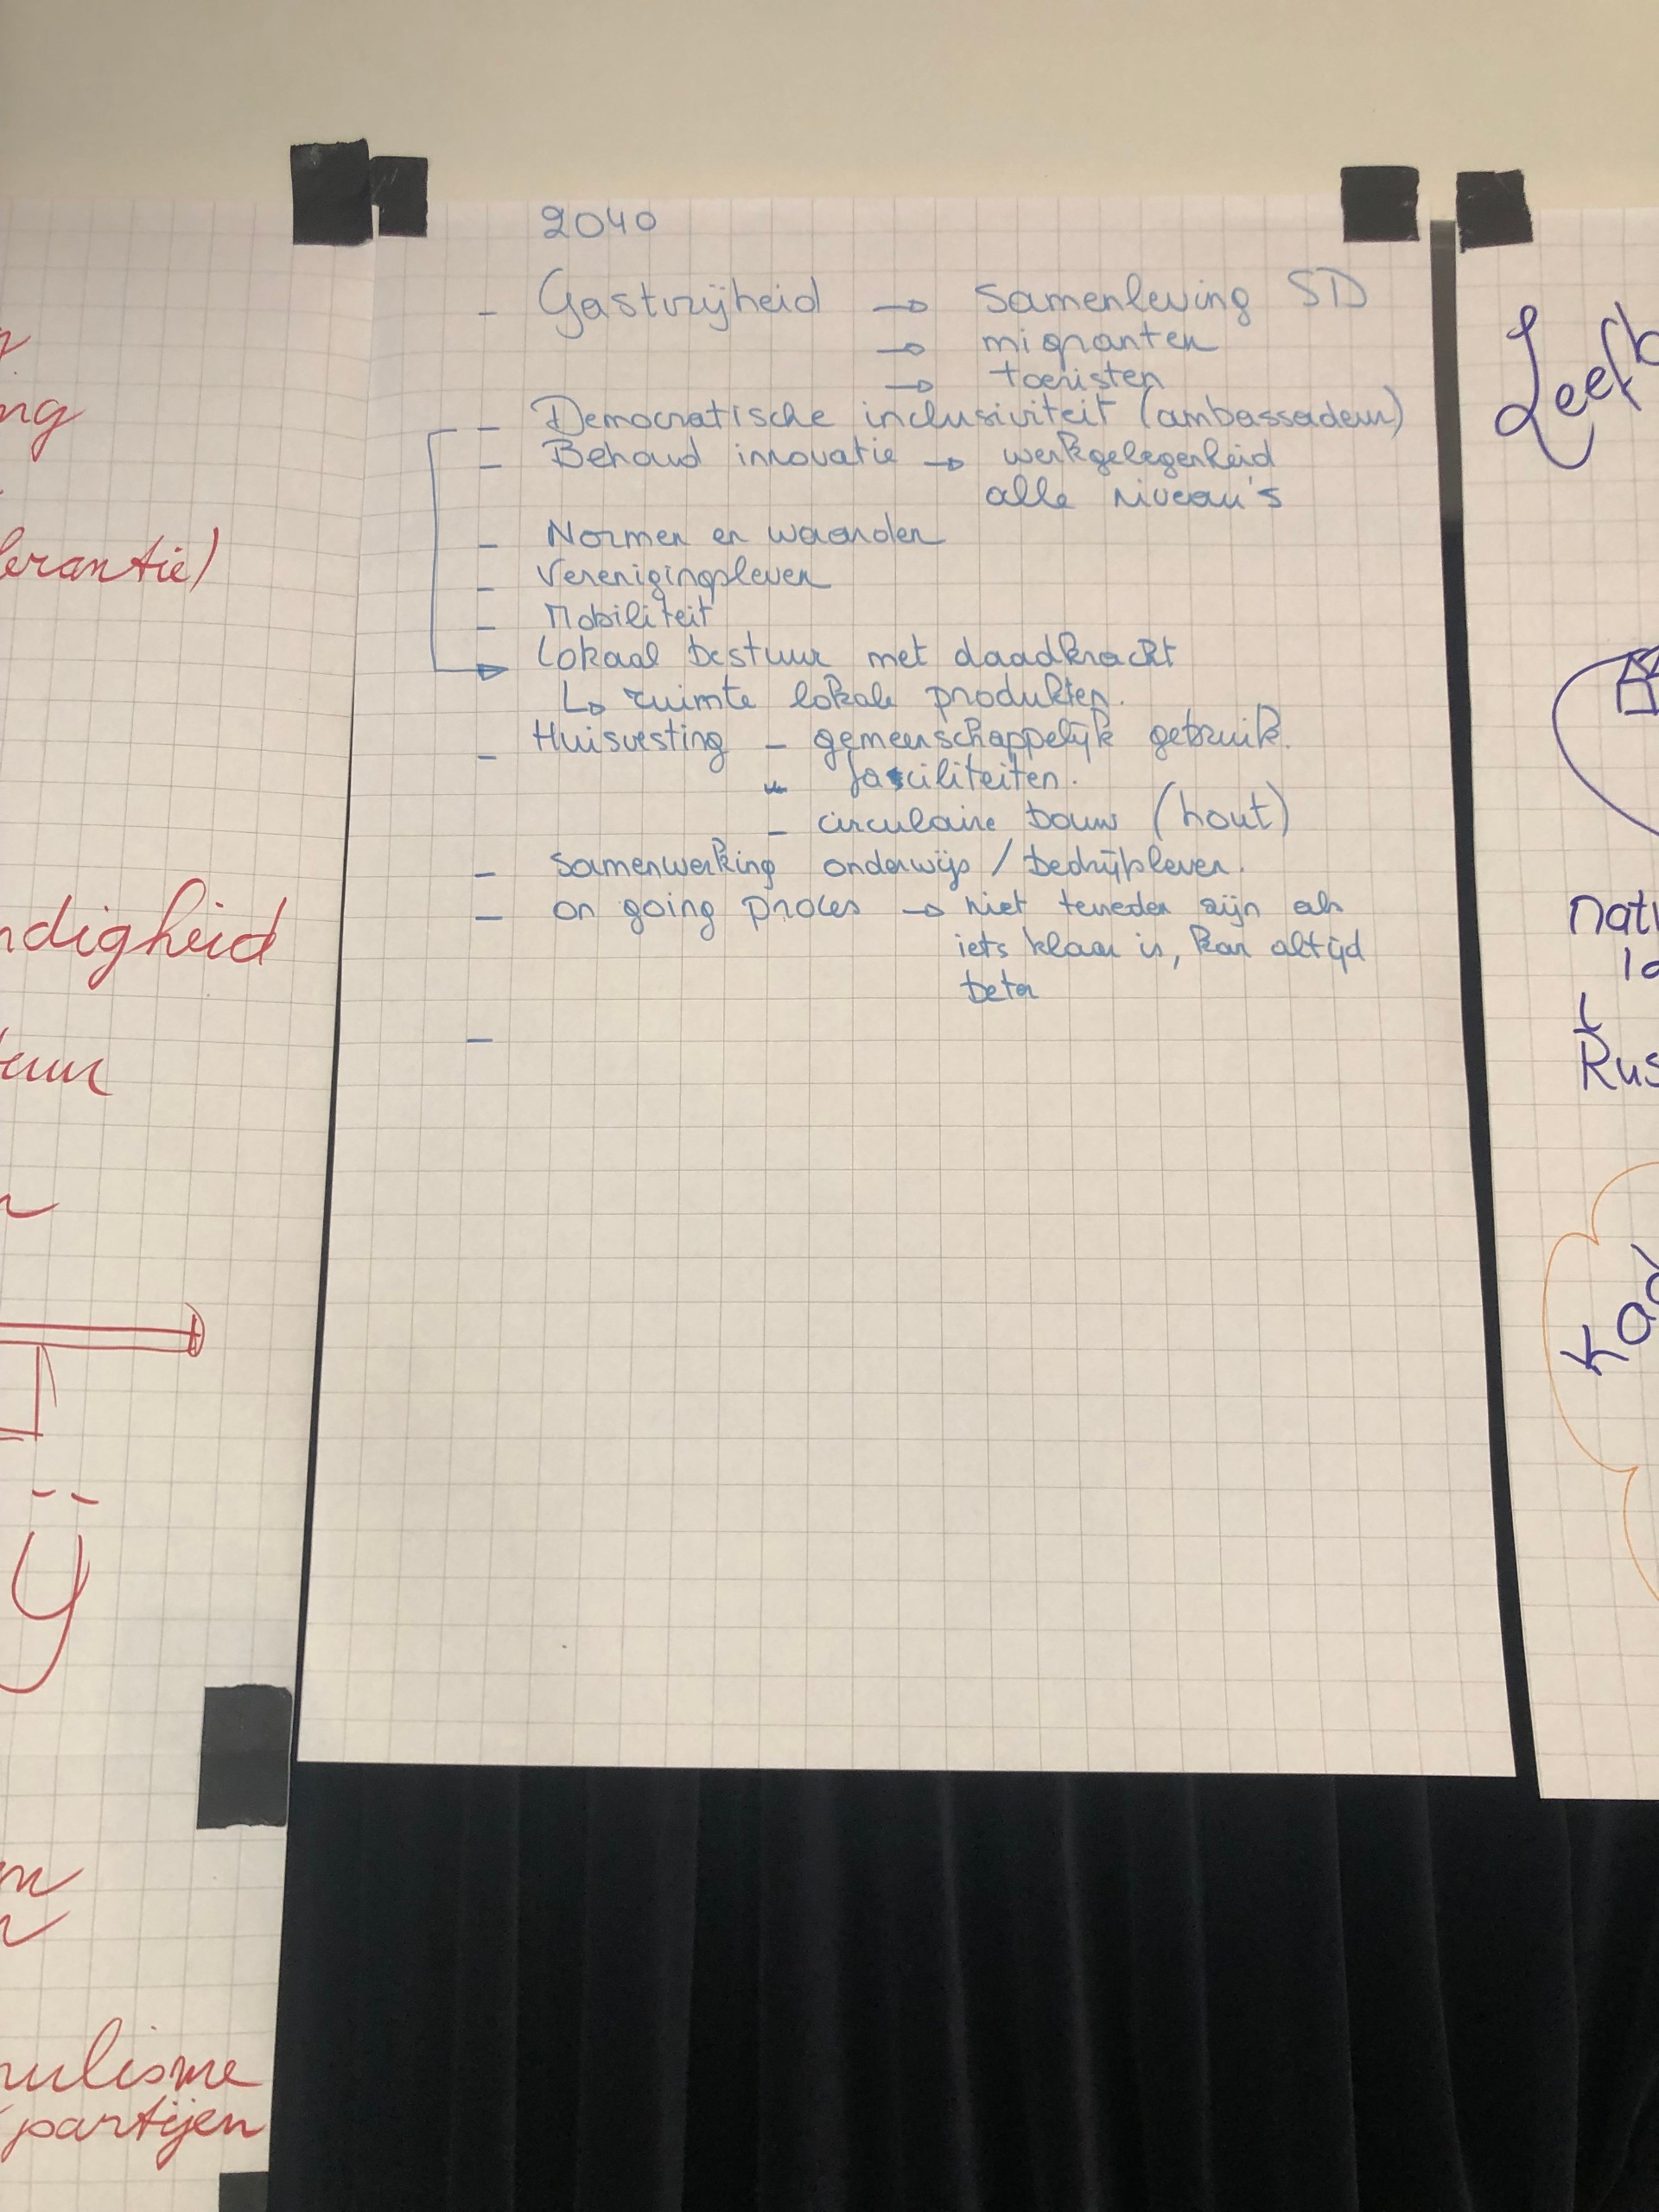 2040
- Gastvrijheid → Samenleving SD
→ migranten
→ toeristen
- Democratische inclusiviteit (ambassadeur)
- Behoud innovatie → werkgelegenheid
alle niveau's
- Normen en waarden
- Verenigingsleven
- Mobiliteit
→ Lokaal bestuur met daadkracht
↳ ruimte lokale produkten.
- Huisvesting - gemeenschappelijk gebruik.
- fasciliteiten.
- circulaire bouw (hout)
- Samenwerking onderwijs / bedrijfsleven.
- on going proces → niet tevreden zijn als
iets klaar is, kan altijd
beter
-
ng
lerantie)
ndigheid
tuur
n
ij
en
n
nulisme
partijen
Leefb
natu
Rus
Kad